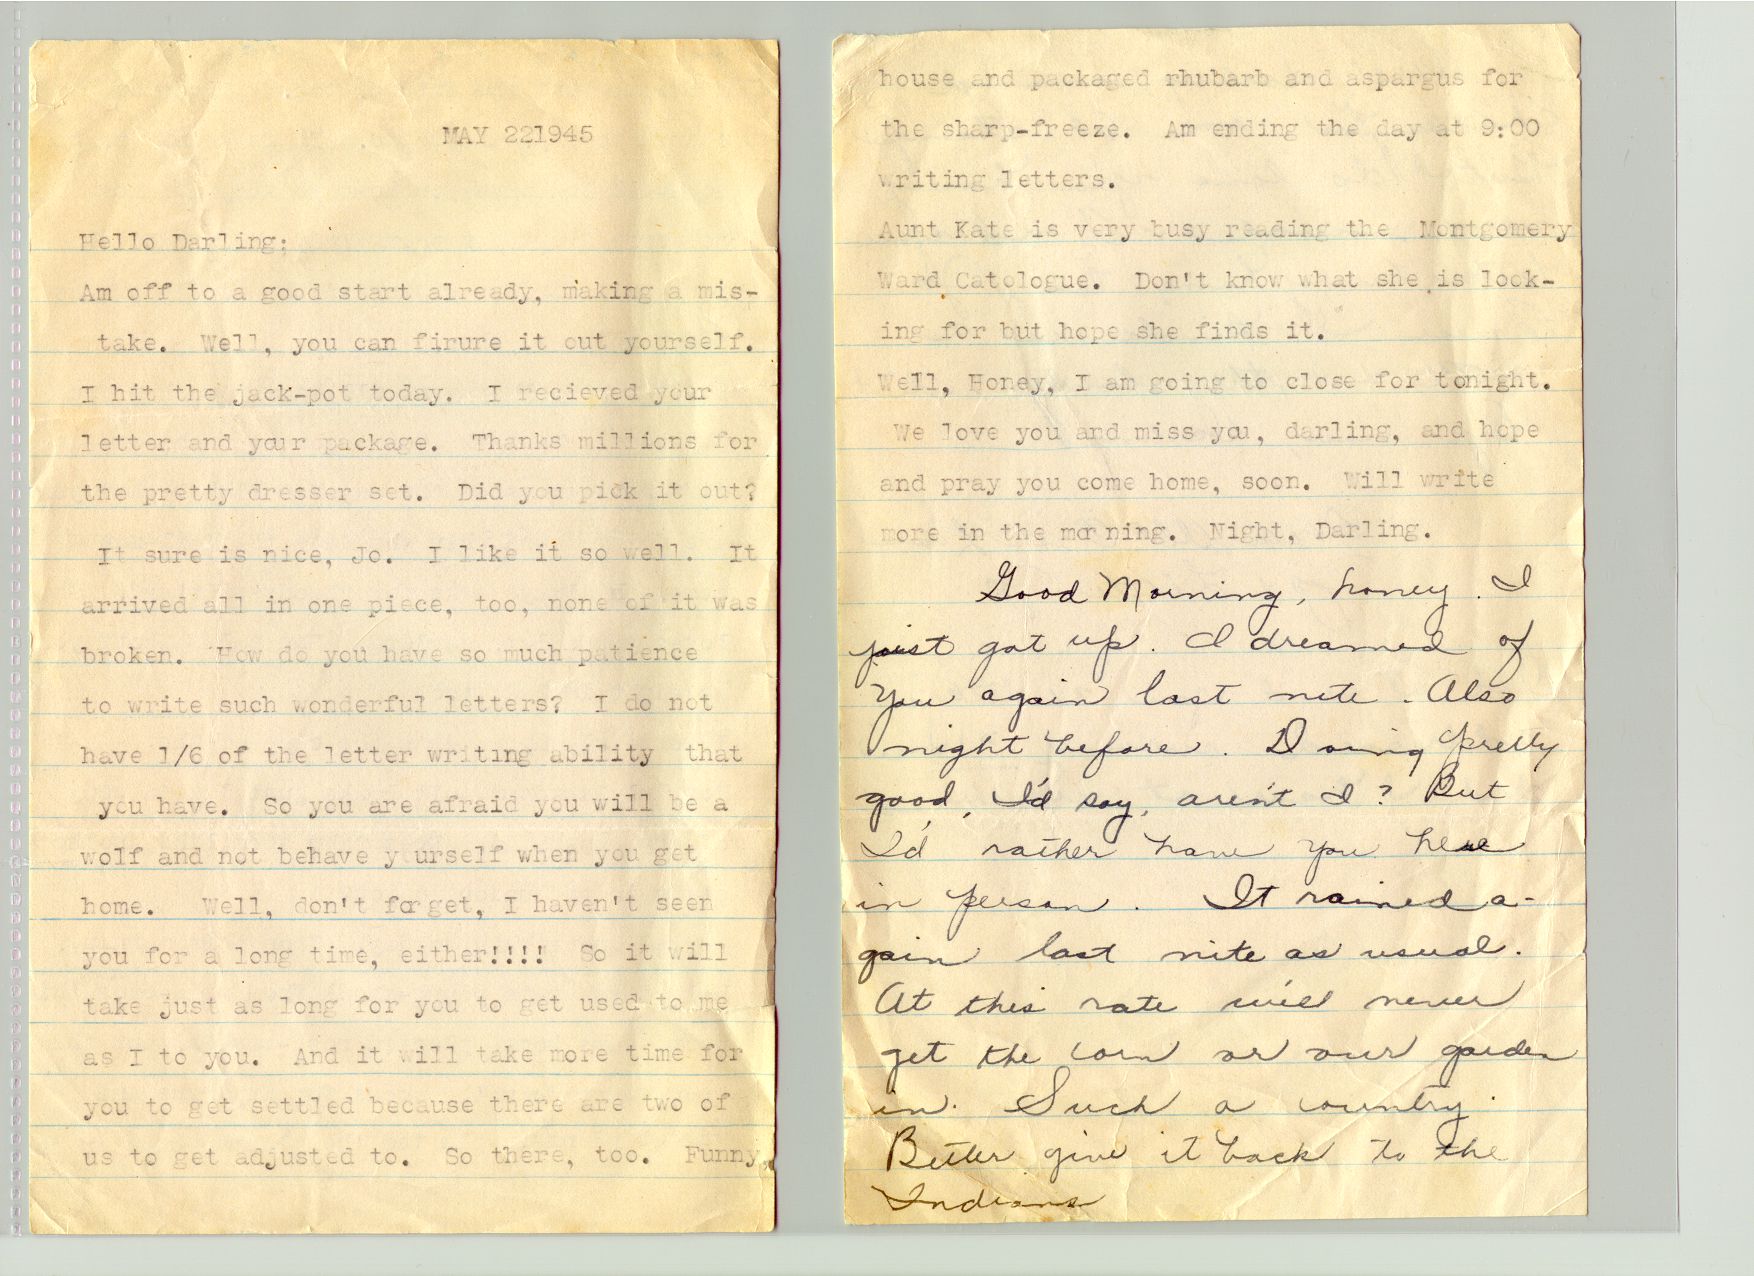 MAY 221945
Hello Darling;
Am off to a good start already, making a mis-
take.  Well, you can firure it out yourself.
I hit the jack-pot today.  I recieved your
letter and your package.  Thanks millions for
the pretty dresser set.  Did you pick it out?
It sure is nice, Jo.  I like it so well.  It
arrived all in one piece, too, none of it was
broken.  How do you have so much patience
to write such wonderful letters?  I do not
have 1/6 of the letter writing ability  that
you have.  So you are afraid you will be a
wolf and not behave yourself when you get
home.   Well, don't forget, I haven't seen
you for a long time, either!!!!  So it will
take just as long for you to get used to me
as I to you.  And it will take more time for
you to get settled because there are two of
us to get adjusted to.  So there, too.  Funny,
house and packaged rhubarb and aspargus for
the sharp-freeze.  Am ending the day at 9:00
writing letters.
Aunt Kate is very busy reading the  Montgomery
Ward Catologue.  Don't know what she is look-
ing for but hope she finds it.
Well, Honey, I am going to close for tonight.
We love you and miss you, darling, and hope
and pray you come home, soon.  Will write
more in the morning.  Night, Darling.
Good Morning, honey. I
just got up. I dreamed of
you again last nite. Also
night before. Doing pretty
good, I'd say, aren't I? But
I'd rather have you here
in person. It rained a-
gain last nite as usual.
At this rate we'll never
get the corn or our garden
in. Such a country.
Better give it back to the
Indians